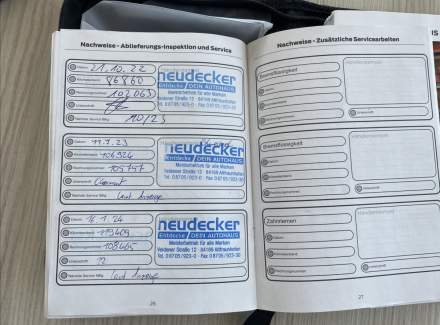 Nachweise - Ablieferungs-Inspektion und Service
Datum 21.10.22
86860
102063
Unterschrift
Nächster Service fällig 10/23
neudecker
Entdecke DEIN AUTOHAUS!
Meisterbetrieb für alle Marken
Veldener Straße 12 · 84169 Altfraunhofen
Tel. 08705/923-0 · Fax 08705/923-30
Datum 11.7.23
Kilometerstand 106924
Rechnungsnummer 105757
Unterschrift
Nächster Service fällig laut Anzeige
neudecker
Entdecke DEIN AUTOHAUS!
Meisterbetrieb für alle Marken
Veldener Straße 12 · 84169 Altfraunhofen
Tel. 08705/923-0 · Fax 08705/923-30
Datum 16.1.24
Kilometerstand 119409
Rechnungsnummer 108465
Unterschrift
Nächster Service fällig laut Anzeige
neudecker
Entdecke DEIN AUTOHAUS!
Meisterbetrieb für alle Marken
Veldener Straße 12 · 84169 Altfraunhofen
Tel. 08705/923-0 · Fax 08705/923-30
26
Nachweise - Zusätzliche Servicearbeiten
Bremsflüssigkeit
Datum
Bremsflüssigkeit
Datum
Zahnriemen
Datum
Kilometerstand
Rechnungsnummer
Unterschrift
27